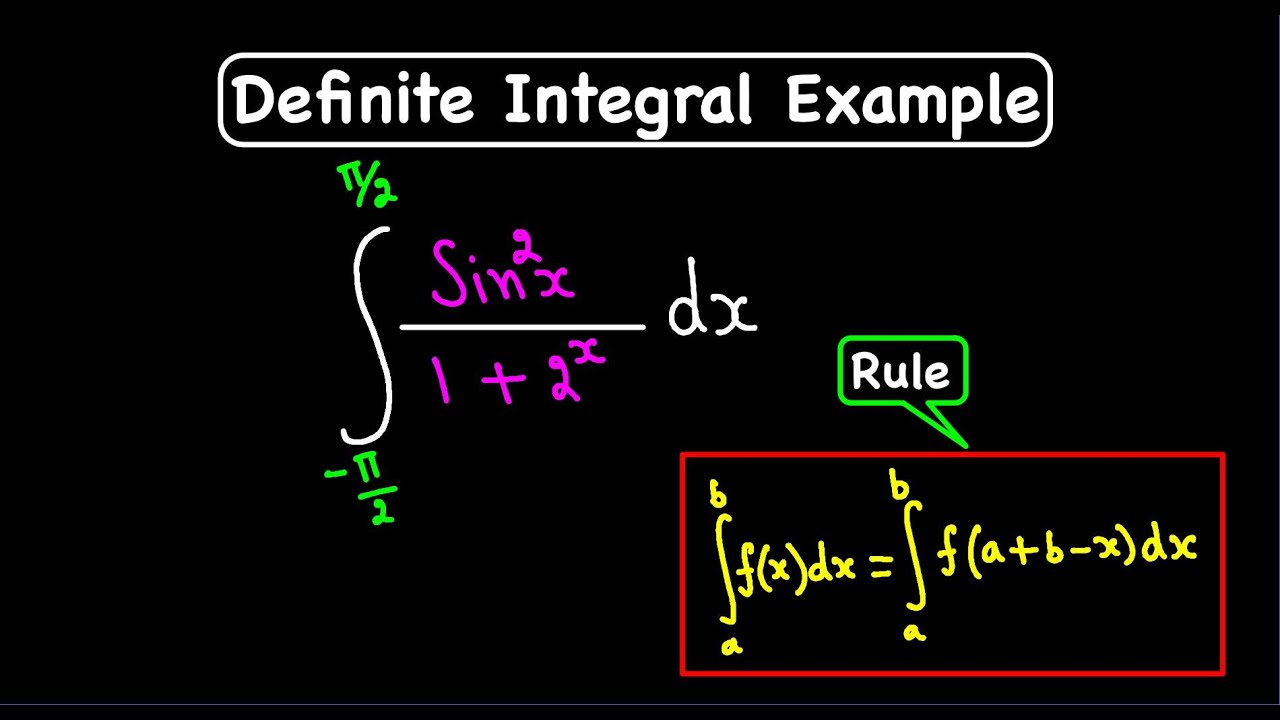 Definite Integral Example
∫_{-π/2}^{π/2} Sin²x / (1 + 2ˣ) dx
Rule
∫_a^b f(x)dx = ∫_a^b f(a+b-x)dx